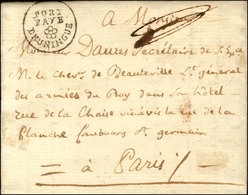 PORT
PAYE
D'HUNINGUE
A Monsieur
Monsieur Danies Secrétaire de S. E.
M. le Chev. de Beauteville Lt. général
des armées du Roy dans son hôtel
rue de la Chaise vis à vis la rue de la
Planche faubourg St. germain
à Paris